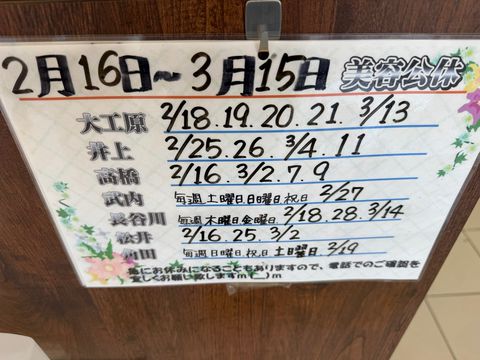 2月16日～3月15日 美容公休
大工原 2/18.19.20.21.3/13
井上 2/25.26.3/4.11
高橋 2/16.3/2.7.9
武内 毎週土曜日日曜日祝日 2/27
長谷川 毎週木曜日金曜日 2/18.28.3/14
松井 2/16.25.3/2
田 毎週日曜日祝日 土曜日 2/19
急にお休みになることもありますので、電話でのご確認を
宜しくお願い致しますm(__)m